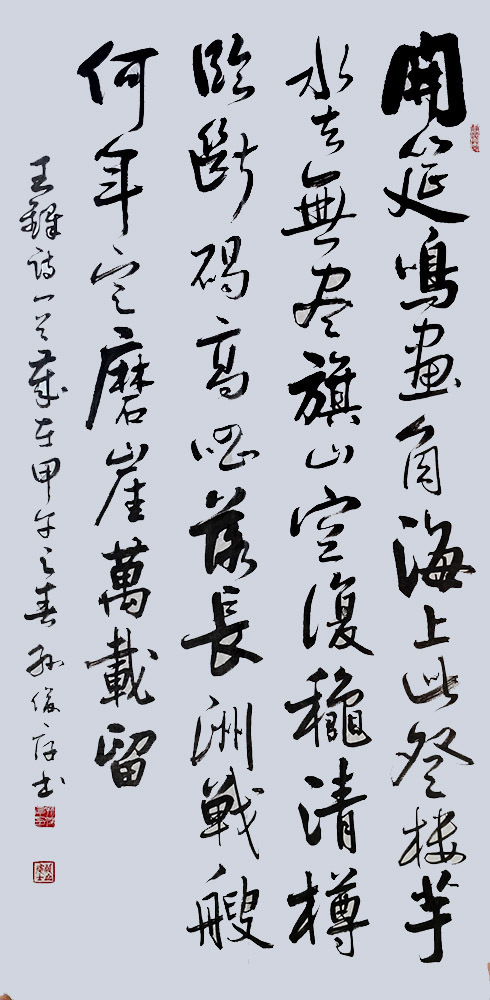 開筵鳴畫角海上此登樓芋
水去無盡旗山空復穐清樽
臨斷碣高唱落長洲戰艘
何年定磨崖萬載留
王鐸詩一首歲在甲午之春孫俊存書